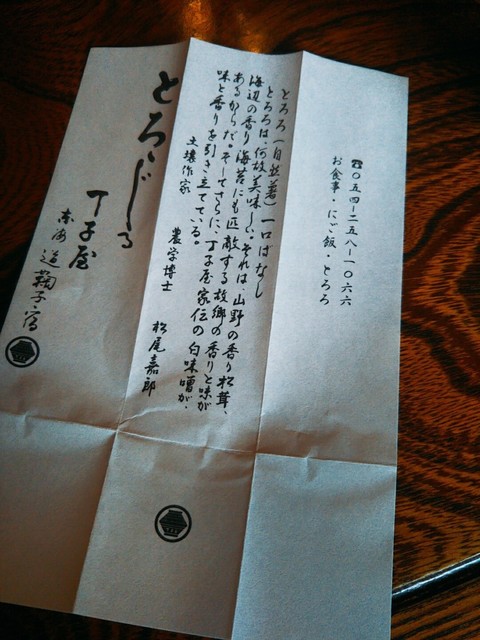 ☎〇五四-二五八-一〇六六
お食事・にご飯・とろろ
とろろ(自然薯)一口ばなし
とろろは、何故美味しい。それは、山野の香り松茸、
海辺の香り海苔にも匹敵する故郷の香りと味が
あるからだ。そしてさらに、丁子屋家伝の白味噌が、
味と香りを引き立てている。
土壌作家 農学博士 松尾嘉郎
とろゝじる
丁子屋
東海道鞠子宿